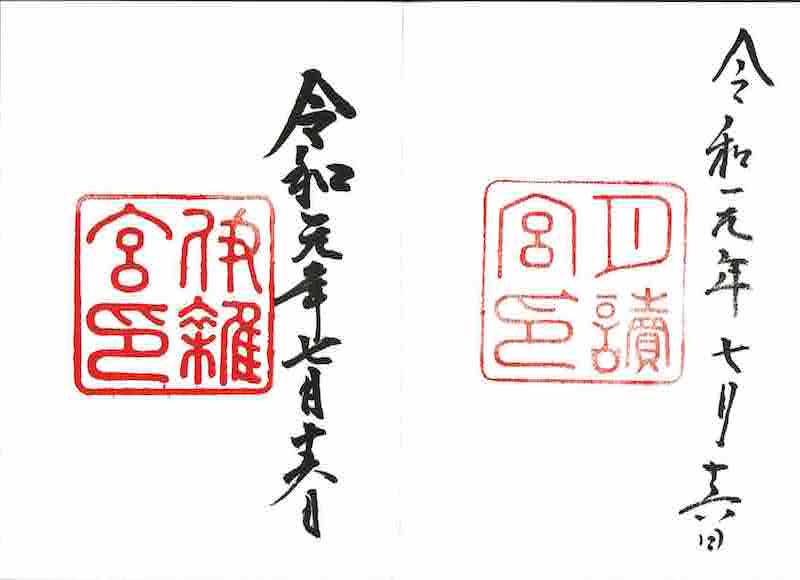 令和元年七月十六日
月讀
宮印
令和元年七月十六日
伊雜
宮印